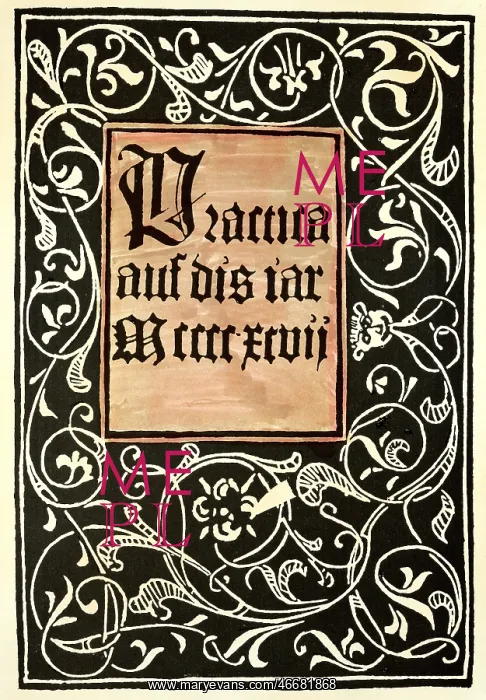 Practica
auf dis iar
Mccccxcvij
ME
PL
ME
PL
www.maryevans.com/46681868